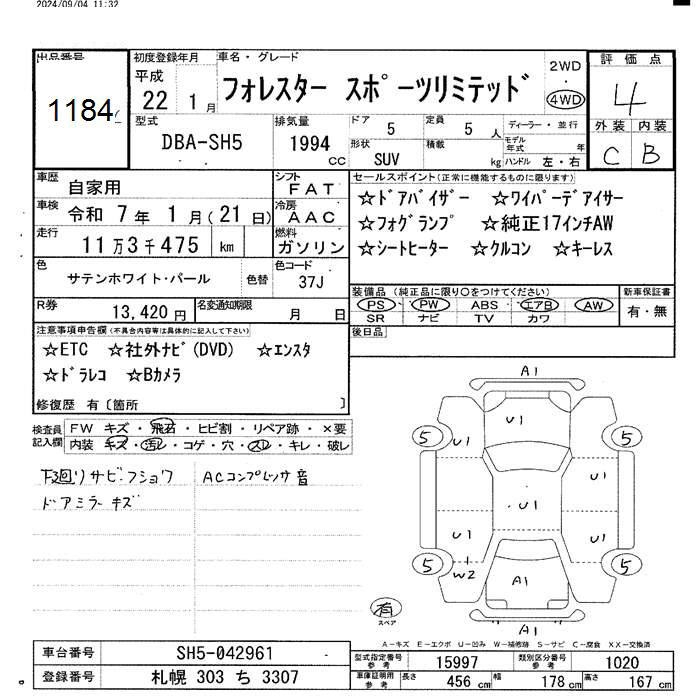 2024/09/04 11:32
出品番号
1184
初度登録年月
平成
22 1月
車名・グレード
フォレスター スポーツリミテッド
2WD
・
4WD
評価点
4
外装 内装
C B
型式
DBA-SH5
排気量
1994
CC
ドア 5
定員 5 人
形状 SUV
積載 kg
ディーラー・並行
モデル年式 年
ハンドル 左・右
車歴 自家用
シフト FAT
車検 令和 7年 1月(21日)
冷房 AAC
走行 11万3千475 km
燃料 ガソリン
色 サテンホワイト・パール
色替
色コード 37J
R券 13,420円
名変通知期限 月 日
セールスポイント(正常に機能するものに限ります)
☆ドアバイザー ☆ワイパーデアイサー
☆フォグランプ ☆純正17インチAW
☆シートヒーター ☆クルコン ☆キーレス
装備品(純正品に限り○をつけてください)
PS PW ABS エアB AW
SR ナビ TV カワ
新車保証書
有・無
後日品
注意事項申告欄(不具合内容等は具体的に記入して下さい)
☆ETC ☆社外ナビ(DVD) ☆エンスタ
☆ドラレコ ☆Bカメラ
修復歴 有〔箇所 〕
検査員記入欄
FW キズ・飛石・ヒビ割・リペア跡・×要
内装 キズ・汚レ・コゲ・穴・スレ・キレ・破レ
下廻りサビ・フショク ACコンプレッサ音
ドアミラーキズ
A1
U1
5 U1 5
U1
U1
U1 U1
5 W2 A1 5
有
スペア
A1
A-キズ E-エクボ U-凹み W-補修跡 S-サビ C-腐食 XX-交換済
車台番号 SH5-042961
登録番号 札幌 303 ち 3307
型式指定番号 参考 15997
類別区分番号 参考 1020
車庫証明用 参考 長さ 456 cm 幅 178 cm 高さ 167 cm